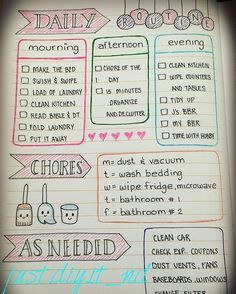 DAILY ROUTINE
mourning
MAKE THE BED
SWISH & SWIPE
LOAD OF LAUNDRY
CLEAN KITCHEN
READ BIBLE & DT
FOLD LAUNDRY
PUT IT AWAY
afternoon
CHORE OF THE
DAY
15 MINUTES
ORGANIZE
AND DECLUTTER
evening
CLEAN KITCHEN
WIPE COUNTERS
AND TABLES
TIDY UP
J's BBR
MY BBR
TIME WITH HOBBY
CHORES
m= dust & vacuum
t = wash bedding
w= wipe fridge, microwave
t= bathroom #1
f = bathroom #2
AS NEEDED
CLEAN CAR
CHECK EXP. COUPONS
DUST VENTS, FANS
BASEBOARDS, WINDOWS
CHANGE FILTER